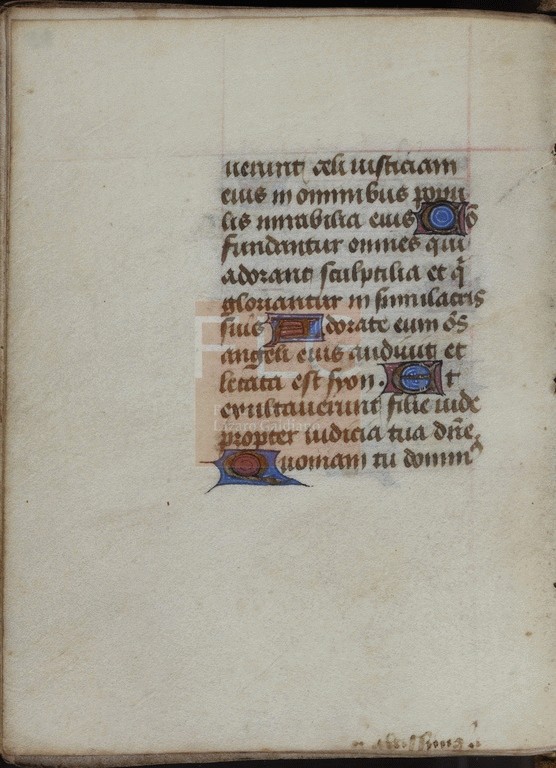 uerunt celi iusticiam
eius in omnibus popu
lis mirabilia eius Cō
fundantur omnes qui
adorant sculptilia et q̄
gloriantur in simulacris
suis Adorate eum oēs
angeli eius audiuit et
letata est syon. Et
exultauerunt filie iude
propter iudicia tua dn̄e
Quoniam tu domin9
Lázaro Galdiano